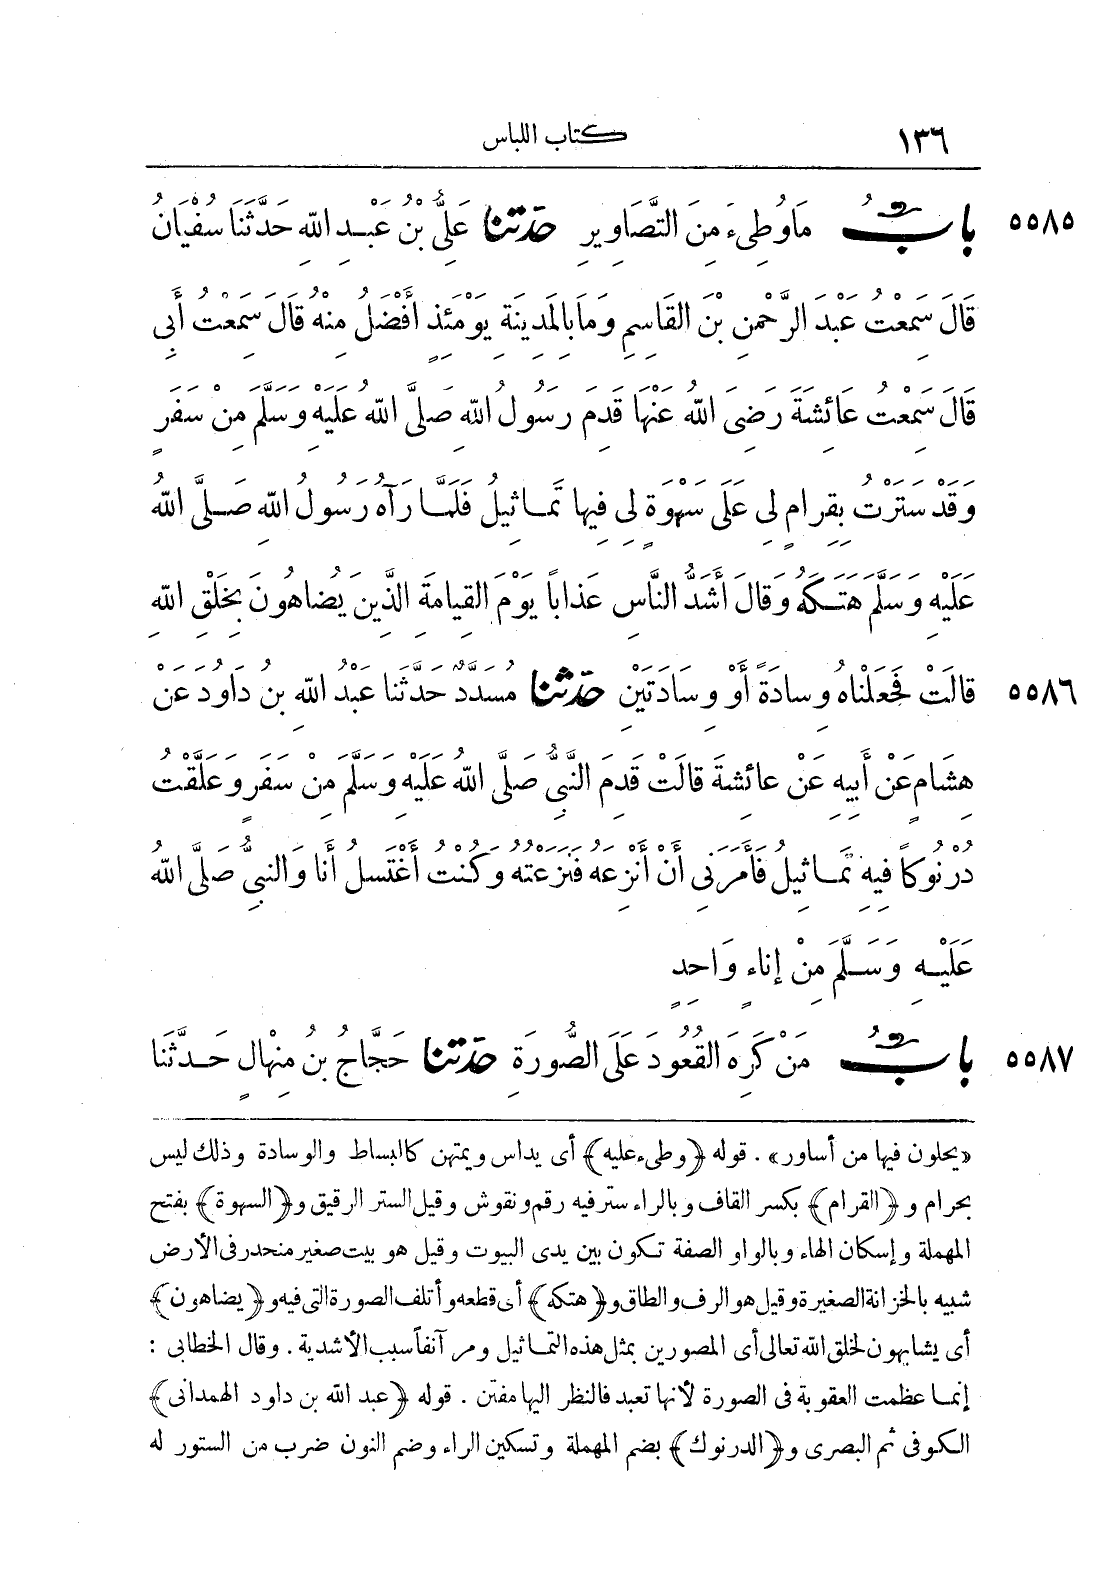 ١٣٦ كتاب اللباس
٥٥٨٥ بابُ مَا وُطِىءَ مِنَ التَّصَاوِيرِ حدثنا عَلِىُّ بْنُ عَبْدِ اللهِ حَدَّثَنَا سُفْيَانُ
قَالَ سَمِعْتُ عَبْدَ الرَّحْمنِ بْنَ القَاسِمِ وَمَا بِالمَدِينَةِ يَوْمَئِذٍ أَفْضَلُ مِنْهُ قَالَ سَمِعْتُ أَبِى
قَالَ سَمِعْتُ عَائِشَةَ رَضِىَ اللهُ عَنْهَا قَدِمَ رَسُولُ اللهِ صَلَّى اللهُ عَلَيْهِ وَسَلَّمَ مِنْ سَفَرٍ
وَقَدْ سَتَرْتُ بِقِرَامٍ لِى عَلَى سَهْوَةٍ لِى فِيهَا تَمَاثِيلُ فَلَمَّا رَآهُ رَسُولُ اللهِ صَلَّى اللهُ
عَلَيْهِ وَسَلَّمَ هَتَكَهُ وَقَالَ أَشَدُّ النَّاسِ عَذَاباً يَوْمَ القِيامَةِ الَّذِينَ يُضَاهُونَ بِخَلْقِ اللهِ
٥٥٨٦ قالَتْ فَجَعَلْنَاهُ وِسادَةً أَوْ وِسَادَتَيْنِ حدثنا مُسَدَّدٌ حَدَّثَنا عَبْدُ اللهِ بنُ دَاوُدَ عَنْ
هِشَامٍ عَنْ أَبِيهِ عَنْ عائِشةَ قالَتْ قَدِمَ النَّبِىُّ صَلَّى اللهُ عَلَيْهِ وَسَلَّمَ مِنْ سَفَرٍ وَعَلَّقْتُ
دُرْنُوكاً فِيهِ تَمَاثِيلُ فَأَمَرَنِى أَنْ أَنْزِعَهُ فَنَزَعْتُهُ وَكُنْتُ أَغْتَسِلُ أَنَا وَالنبِىُّ صَلَّى اللهُ
عَلَيْهِ وَسَلَّمَ مِنْ إِناءٍ وَاحِدٍ
٥٥٨٧ بابُ مَنْ كَرِهَ القُعُودَ عَلَى الصُّورَةِ حدثنا حَجَّاجُ بنُ مِنْهالٍ حَدَّثَنا
«يحلون فيها من أساور» . قوله ﴿وطىء عليه﴾ أى يداس ويمتهن كالبساط والوسادة وذلك ليس
بحرام و ﴿القرام﴾ بكسر القاف وبالراء ستر فيه رقم ونقوش وقيل الستر الرقيق و﴿السهوة﴾ بفتح
المهملة وإسكان الهاء وبالواو الصفة تكون بين يدى البيوت وقيل هو بيت صغير منحدر فى الأرض
شبيه بالخزانة الصغيرة وقيل هو الرف والطاق و﴿هتكه﴾ أى قطعه وأتلف الصورة التى فيه و﴿يضاهون﴾
أى يشابهون لخلق الله تعالى أى المصورين بمثل هذه التماثيل ومر آنفاً سبب الأشدية . وقال الخطابى :
إنما عظمت العقوبة فى الصورة لأنها تعبد فالنظر اليها مفتن . قوله ﴿عبد الله بن داود الهمدانى﴾
الكوفى ثم البصرى و﴿الدرنوك﴾ بضم المهملة وتسكين الراء وضم النون ضرب من الستور له